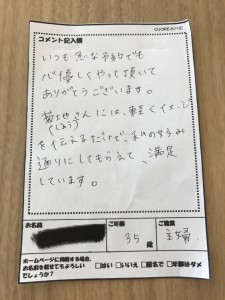 CUORE
コメント記入欄
いつも急な予約でも
心優しくやって頂いて
ありがとうございます。
菊地さんには、軽くイメージ
を伝えるだけで、私の好み
通りにしてもらえて、満足
しています。
お名前
ご年齢
35
歳
ご職業
主婦
ホームページに掲載する場合、
お名前を載せてもよろしい
でしょうか?
□はい □いいえ □匿名で □年齢はダメ